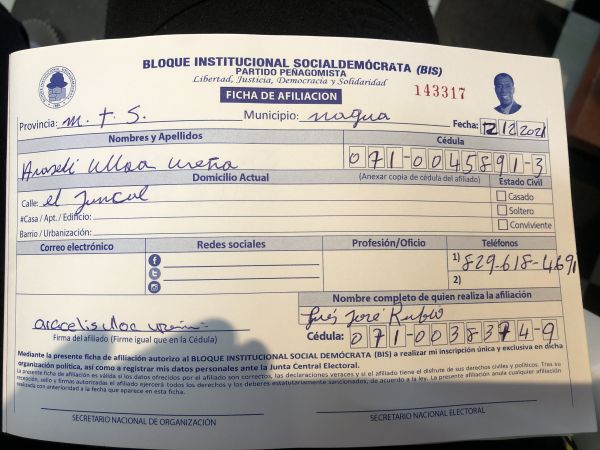 BLOQUE INSTITUCIONAL SOCIALDEMÓCRATA (BIS)
PARTIDO PEÑAGOMISTA
Libertad, Justicia, Democracia y Solidaridad
FICHA DE AFILIACION
143317
Provincia: M.T.S. Municipio: nagua Fecha: 12/12/2021
Nombres y Apellidos Cédula
Araseli ulloa ureña 071-0045891-3
Domicilio Actual (Anexar copia de cédula del afiliado) Estado Civil
Calle: el Juncal Casado
#Casa / Apt. / Edificio: Soltero
Barrio / Urbanización: Conviviente
Correo electrónico Redes sociales Profesión/Oficio Teléfonos
1) 829-618-4691
2)
Nombre completo de quien realiza la afiliación
José Rubio
Firma del afiliado (Firme igual que en la Cédula) Cédula: 071-0038374-9
Mediante la presente ficha de afiliación autorizo al BLOQUE INSTITUCIONAL SOCIAL DEMÓCRATA (BIS) a realizar mi inscripción única y exclusiva en dicha
organización política, así como a registrar mis datos personales ante la Junta Central Electoral.
La presente ficha de afiliación es válida si los datos ofrecidos por el afiliado son correctos, las declaraciones veraces y si el afiliado tiene el disfrute de sus derechos civiles y políticos. Tras su
recepción, sello y firmas autorizadas el afiliado ejercerá todos los derechos y los deberes estatutariamente sancionados, de acuerdo a la ley. La presente afiliación anula cualquier afiliación
realizada con anterioridad a la fecha que aparece en esta ficha.
SECRETARIO NACIONAL DE ORGANIZACIÓN SECRETARIO NACIONAL ELECTORAL